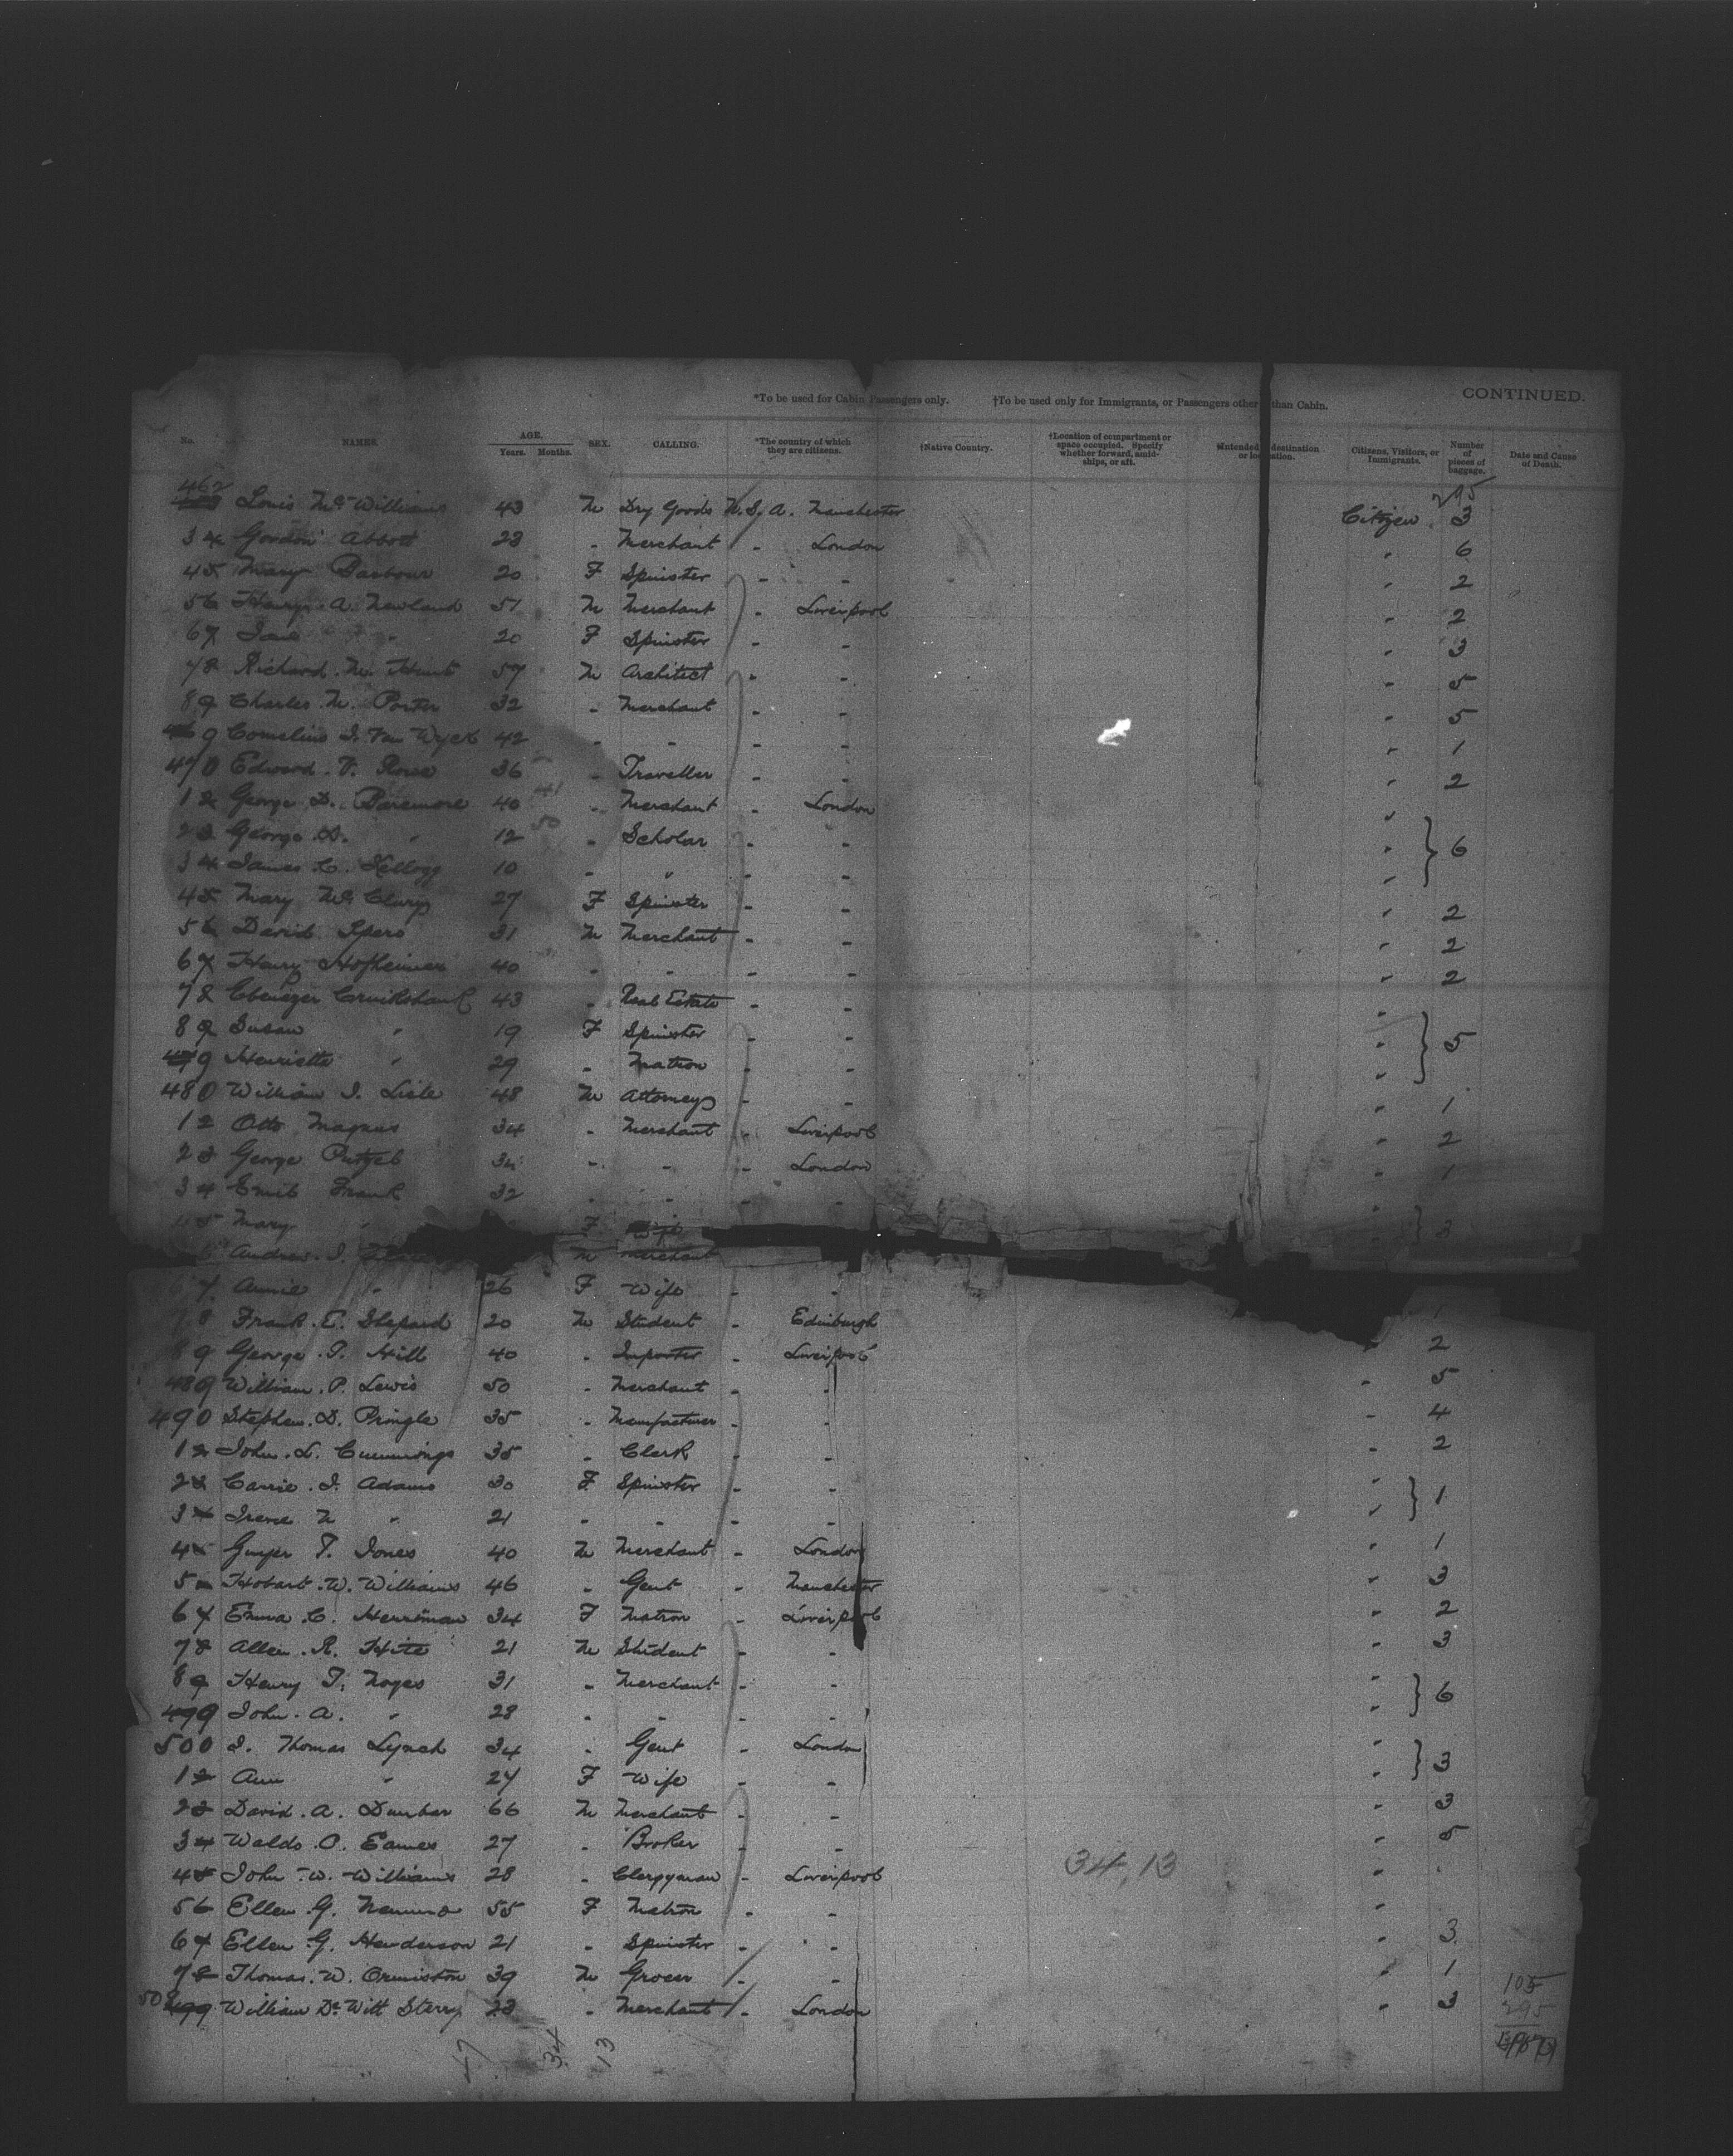 CONTINUED.
*To be used for Cabin Passengers only. †To be used only for Immigrants, or Passengers other than Cabin.
No. NAMES. AGE. Years. Months. SEX. CALLING. *The country of which they are citizens. †Native Country. †Location of compartment or space occupied. Specify whether forward, amidships, or aft. †Intended destination or location. Citizens, Visitors, or Immigrants. Number of pieces of baggage. Date and Cause of Death.
295
462 Louis Mc Williams 43 M Dry Goods U.S.A. Manchester Citizen 3
3 Gordon Abbott 23 " Merchant " London " 6
4 Mary Barbour 20 F Spinster " " " 2
5 Henry A. Newland 51 M Merchant " Liverpool " 2
6 Jane " 20 F Spinster " " " 3
7 Richard M. Hunt 57 M Architect " " " 5
8 Charles M. Porter 32 " Merchant " " " 5
9 Cornelius I. Van Wyck 42 " " " " " 1
470 Edward V. Rowe 36 " Traveller " " " 2
1 George D. Baremore 40 " Merchant " London "
2 George D. " 12 " Scholar " " " 6
3 James C. Kellogg 10 " " " " "
4 Mary Mc Clurg 27 F Spinster " " " 2
5 David Spero 31 M Merchant " " " 2
6 Henry Hofheimer 40 " " " " " 2
7 Ebenezer Cruikshank 43 " Real Estate " " "
8 Susan " 19 F Spinster " " " 5
9 Henrietta " 29 " Matron " " "
480 William I. Lisle 48 M Attorney " " " 1
1 Otto Magnus 34 " Merchant " Liverpool " 2
2 George Putzel 34 " " " London " 1
3 Emil Frank 32 " " " "
Mary " F Wife 3
Andrew I. M Merchant
Annie " 26 F Wife " "
Frank E. Shepard 20 M Student " Edinburgh 1
George P. Hill 40 " Importer " Liverpool " 2
489 William P. Lewis 50 " Merchant " " " 5
490 Stephen D. Pringle 35 " Manufacturer " " " 4
1 John L. Cummings 35 " Clerk " " " 2
2 Carrie I. Adams 30 F Spinster " " " 1
3 Irene M " 21 " " " " "
4 T. Jones 40 M Merchant " London " 1
5 Hobart W. Williams 46 " Gent " Manchester " 3
6 Emma C. Herriman 34 F Matron " Liverpool " 2
7 Allen R. Hite 21 M Student " " " 3
8 Henry T. Noyes 31 " Merchant " " " 6
499 John A. " 28 " " " " "
500 I. Thomas Lynch 34 " Gent " London " 3
1 Ann " 24 F Wife " " "
2 David A. Dunbar 66 M Merchant " " " 3
3 Waldo O. Eames 27 " Broker " " " 5
4 John W. Williams 28 " Clergyman " Liverpool "
34,13
5 Ellen G. 55 F Matron " " "
6 Ellen G. Henderson 21 " Spinster " " " 3
7 Thomas W. Ormiston 39 M Grocer " " " 1
508 William De Witt Sterry 23 " Merchant " London " 3
105
295
47 34 13